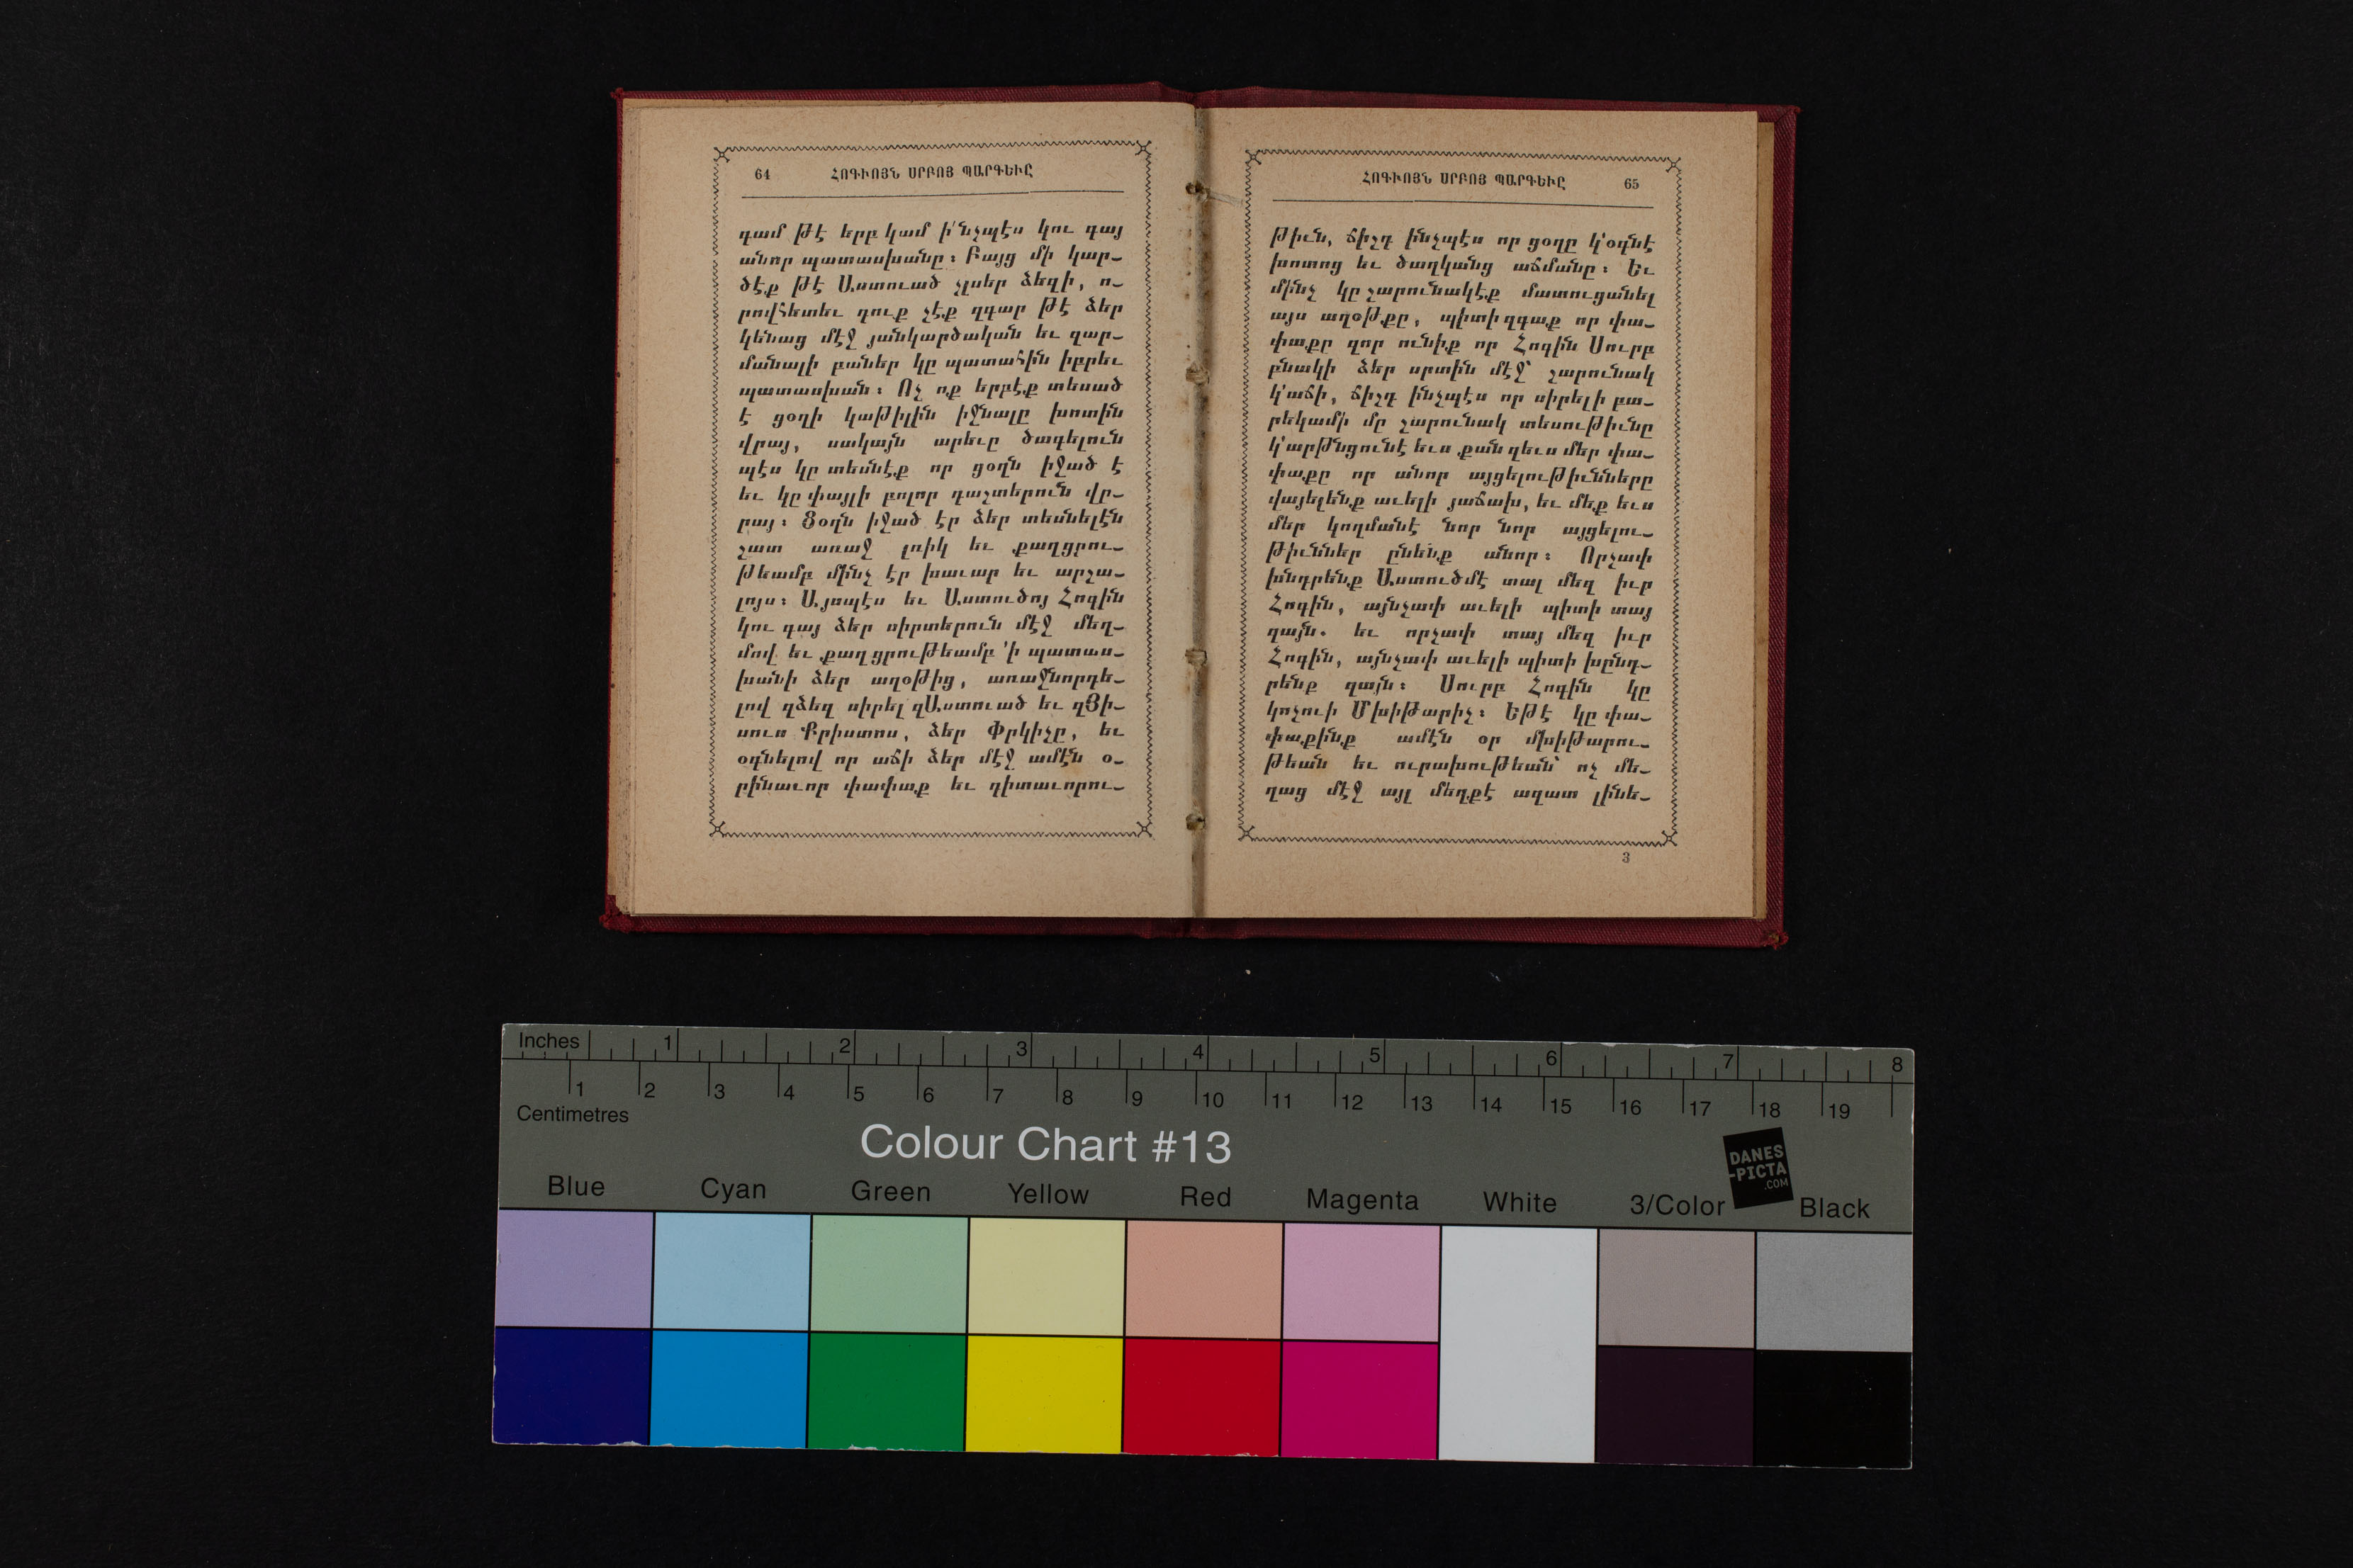 64 ՀՈԳԻՈՅՆ ՍՐԲՈՅ ՊԱՐԳԵՒԸ
գամ թէ երբ կամ ի՛նչպէս կու գայ
անոր պատասխանը։ Բայց մի կար–
ծէք թէ Աստուած չլսեր ձեզի, ո–
րովհետեւ դուք չէք զգար թէ ձեր
կենաց մէջ յանկարծական եւ զար–
մանալի բաներ կը պատահին իբրեւ
պատասխան։ Ոչ ոք երբէք տեսած
է ցօղի կաթիլին իջնալը խոտին
վրայ, սակայն արեւը ծագելուն
պէս կը տեսնէք որ ցօղն իջած է
եւ կը փայլի բոլոր դաշտերուն վը–
րայ։ Ցօղն իջած էր ձեր տեսնելէն
շատ առաջ լռիկ եւ քաղցրու–
թեամբ մինչ էր խաւար եւ արշա–
լոյս։ Այսպէս եւ Աստուծոյ Հոգին
կու գայ ձեր սիրտերուն մէջ մեղ–
մով եւ քաղցրութեամբ ՚ի պատաս–
խանի ձեր աղօթից, առաջնորդե–
լով զձեզ սիրել զԱստուած եւ զՅի–
սուս Քրիստոս, ձեր Փրկիչը, եւ
օգնելով որ աճի ձեր մէջ ամէն օ–
րինաւոր փափաք եւ դիտաւորու–
ՀՈԳԻՈՅՆ ՍՐԲՈՅ ՊԱՐԳԵՒԸ 65
թիւն, ճիշդ ինչպէս որ ցօղը կ՚օգնէ
խոտոց եւ ծաղկանց աճմանը։ Եւ
մինչ կը շարունակէք մատուցանել
այս աղօթքը, պիտի զգաք որ փա–
փաքը զոր ունիք որ Հոգին Սուրբ
բնակի ձեր սրտին մէջ՝ շարունակ
կ՚աճի, ճիշդ ինչպէս որ սիրելի բա–
րեկամի մը շարունակ տեսութիւնը
կ՚արթնցունէ եւս քան զեւս մեր փա–
փաքը որ անոր այցելութիւնները
վայելենք աւելի յաճախ, եւ մեք եւս
մեր կողմանէ նոր նոր այցելու–
թիւններ ընենք անոր։ Որչափ
խնդրենք Աստուծմէ տալ մեզ իւր
Հոգին, այնչափ աւելի պիտի տայ
զայն. եւ որչափ տայ մեզ իւր
Հոգին, այնչափ աւելի պիտի խընդ–
րենք զայն։ Սուրբ Հոգին կը
կոչուի Մխիթարիչ։ Եթէ կը փա–
փաքինք ամէն օր մխիթարու–
թեան եւ ուրախութեան՝ ոչ մե–
ղաց մէջ այլ մեղքէ ազատ լինե–
3
Inches 1 2 3 4 5 6 7 8
1 2 3 4 5 6 7 8 9 10 11 12 13 14 15 16 17 18 19
Centimetres
Colour Chart #13
DANES
-PICTA
.COM
Blue Cyan Green Yellow Red Magenta White 3/Color Black